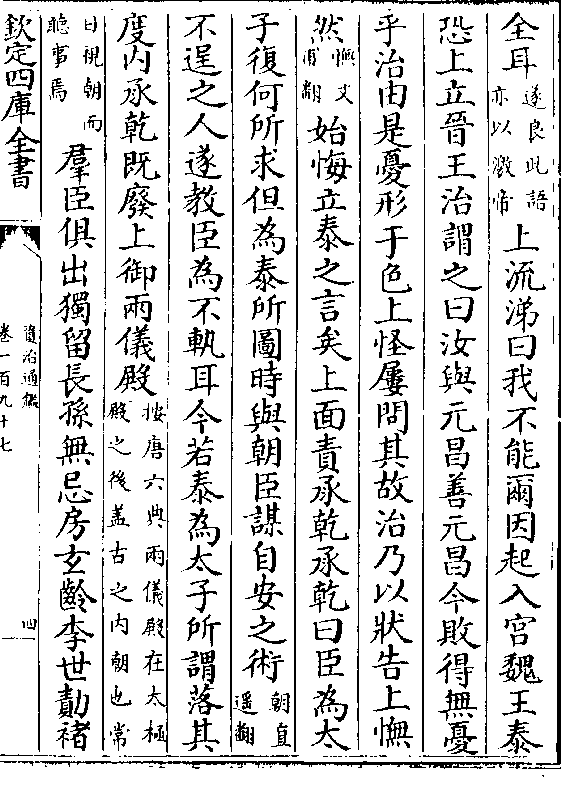 全耳遂良此語亦以激帝上流涕曰我不能爾因起入宫魏王泰
恐上立晉王治謂之曰汝與元昌善元昌今敗得無憂
乎治由是憂形于色上怪屢問其故治乃以狀告上憮
然憮文甫翻始悔立泰之言矣上面責承乾承乾曰臣為太
子復何所求但為泰所圖時與朝臣謀自安之術朝直遥翻
不逞之人遂教臣為不軌耳今若泰為太子所謂落其
度内承乾既廢上御兩儀殿按唐六典兩儀殿在太極殿之後盖古之内朝也常
日視朝而聽事焉羣臣俱出獨留長孫無忌房玄齡李世勣褚
欽定四庫全書
資治通鑑
卷一百九十七
四